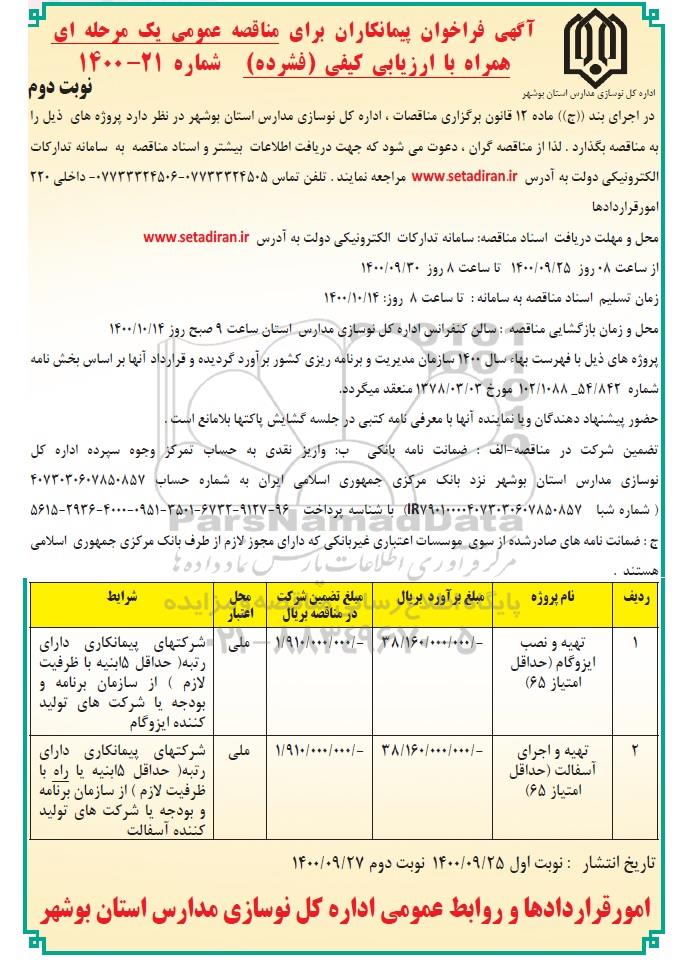 آگهی فراخوان پیمانکاران برای مناقصه عمومی یک مرحله ای
همراه با ارزیابی کیفی (فشرده) شماره ۲۱-۱۴۰۰
نوبت دوم
اداره کل نوسازی مدارس استان بوشهر
در اجرای بند ((ج)) ماده ۱۲ قانون برگزاری مناقصات ، اداره کل نوسازی مدارس استان بوشهر در نظر دارد پروژه های ذیل را
به مناقصه بگذارد . لذا از مناقصه گران ، دعوت می شود که جهت دریافت اطلاعات بیشتر و اسناد مناقصه به سامانه تدارکات
الکترونیکی دولت به آدرس www.setadiran.ir مراجعه نمایند . تلفن تماس ۰۷۷۳۳۳۲۴۵۰۵-۰۷۷۳۳۳۲۴۵۰۶- داخلی ۲۲۰
امورقراردادها
محل و مهلت دریافت اسناد مناقصه: سامانه تدارکات الکترونیکی دولت به آدرس www.setadiran.ir
از ساعت ۰۸ روز ۱۴۰۰/۰۹/۲۵ تا ساعت ۸ روز ۱۴۰۰/۰۹/۳۰
زمان تسلیم اسناد مناقصه به سامانه : تا ساعت ۸ روز: ۱۴۰۰/۱۰/۱۴
محل و زمان بازگشایی مناقصه : سالن کنفرانس اداره کل نوسازی مدارس استان ساعت ۹ صبح روز ۱۴۰۰/۱۰/۱۴
پروژه های ذیل با فهرست بهاء سال ۱۴۰۰ سازمان مدیریت و برنامه ریزی کشور برآورد گردیده و قرارداد آنها بر اساس بخش نامه
شماره ۵۴/۸۴۲_ ۱۰۲/۱۰۸۸ مورخ ۱۳۷۸/۰۳/۰۳ منعقد میگردد.
حضور پیشنهاد دهندگان ویا نماینده آنها با معرفی نامه کتبی در جلسه گشایش پاکتها بلامانع است .
تضمین شرکت در مناقصه-الف : ضمانت نامه بانکی ب: واریز نقدی به حساب تمرکز وجوه سپرده اداره کل
نوسازی مدارس استان بوشهر نزد بانک مرکزی جمهوری اسلامی ایران به شماره حساب ۴۰۷۳۰۳۰۶۰۷۸۵۰۸۵۷
( شماره شبا IR۷۹۰۱۰۰۰۰۴۰۷۳۰۳۰۶۰۷۸۵۰۸۵۷) با شناسه پرداخت ۹۶-۹۱۲۷-۶۷۳۲-۳۵۰۱-۰۹۵۱-۴۰۰۰-۲۹۳۶-۵۶۱۵
ج : ضمانت نامه های صادرشده از سوی موسسات اعتباری غیربانکی که دارای مجوز لازم از طرف بانک مرکزی جمهوری اسلامی
هستند .
ParsNamadData
مرکز فرآوری اطلاعات پارس نماد داده ها
ردیف نام پروژه مبلغ برآورد بریال مبلغ تضمین شرکت در مناقصه بریال محل اعتبار شرایط
۱ تهیه و نصب ایزوگام (حداقل امتیاز ۶۵) ۳۸/۱۶۰/۰۰۰/۰۰۰/- ۱/۹۱۰/۰۰۰/۰۰۰/- ملی شرکتهای پیمانکاری دارای
رتبه( حداقل ۵ابنیه با ظرفیت
لازم ) از سازمان برنامه و
بودجه یا شرکت های تولید
کننده ایزوگام
۲ تهیه و اجرای آسفالت (حداقل امتیاز ۶۵) ۳۸/۱۶۰/۰۰۰/۰۰۰/- ۱/۹۱۰/۰۰۰/۰۰۰/- ملی شرکتهای پیمانکاری دارای
رتبه( حداقل ۵ابنیه یا راه با
ظرفیت لازم ) از سازمان برنامه
و بودجه یا شرکت های تولید
کننده آسفالت
تاریخ انتشار : نوبت اول ۱۴۰۰/۰۹/۲۵ نوبت دوم ۱۴۰۰/۰۹/۲۷
امورقراردادها و روابط عمومی اداره کل نوسازی مدارس استان بوشهر